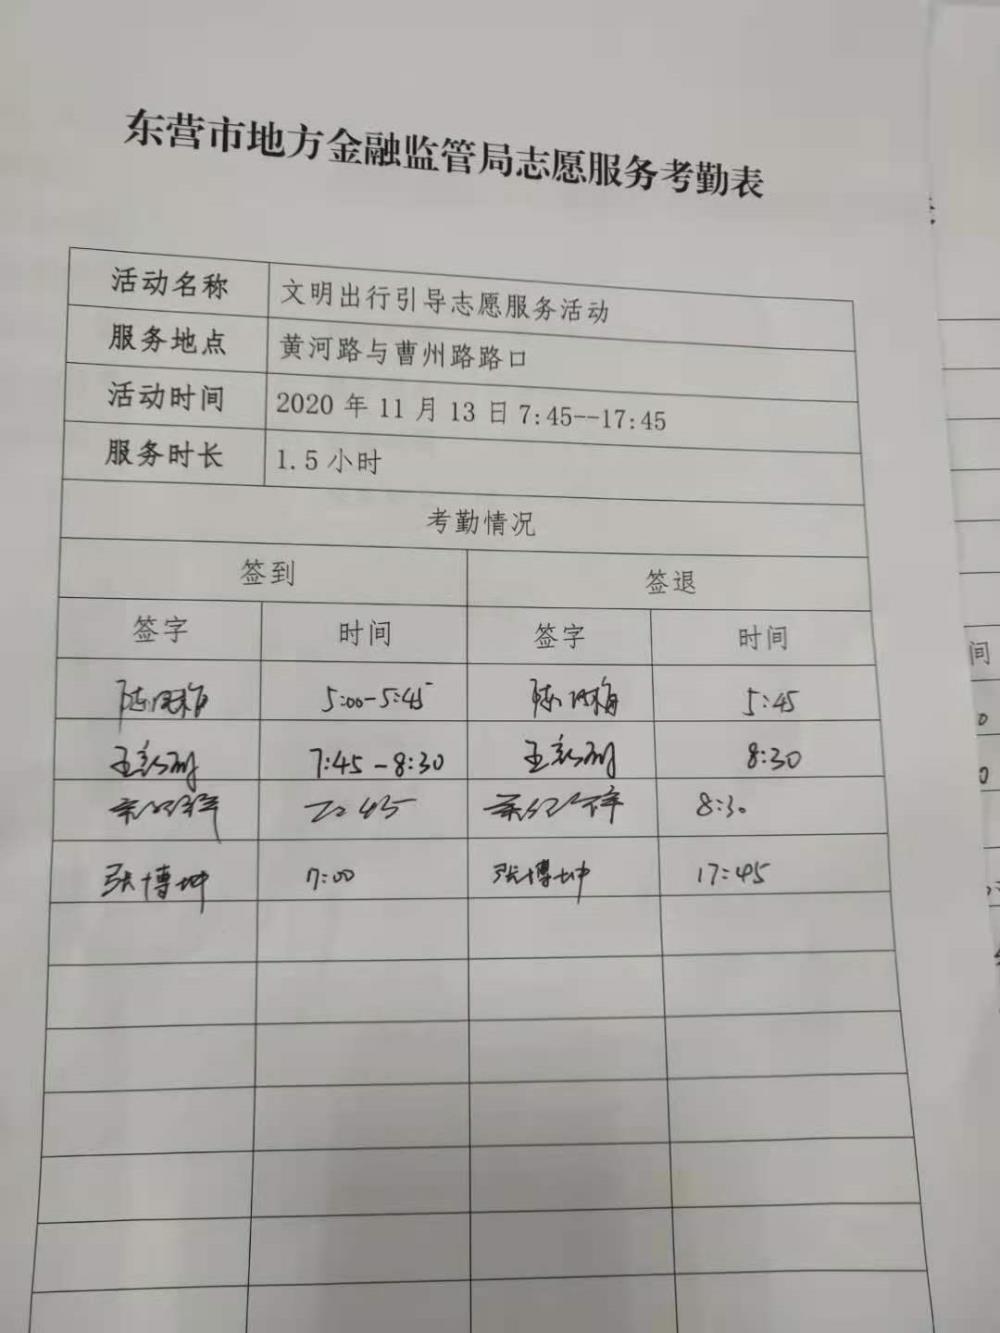 东营市地方金融监管局志愿服务考勤表
活动名称 文明出行引导志愿服务活动
服务地点 黄河路与曹州路路口
活动时间 2020 年 11 月 13 日 7:45--17:45
服务时长 1.5 小时
考勤情况
签到 签退
签字 时间 签字 时间
5:00-5:45 5:45
7:45-8:30 8:30
8:30
张博坤 7:00 张博坤 17:45
间